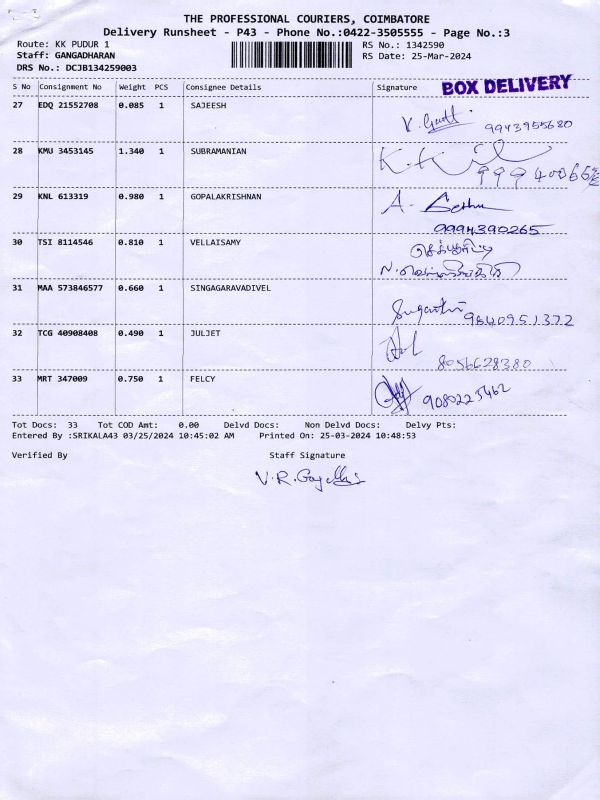 THE PROFESSIONAL COURIERS, COIMBATORE
Delivery Runsheet - P43 - Phone No.:0422-3505555 - Page No.:3
Route: KK PUDUR 1 RS No.: 1342590
Staff: GANGADHARAN RS Date: 25-Mar-2024
DRS No.: DCJB134259003
BOX DELIVERY
S No Consignment No Weight PCS Consignee Details Signature
27 EDQ 21552708 0.085 1 SAJEESH
9943955680
28 KMU 3453145 1.340 1 SUBRAMANIAN
29 KNL 613319 0.980 1 GOPALAKRISHNAN
9994390265
30 TSI 8114546 0.810 1 VELLAISAMY
31 MAA 573846577 0.660 1 SINGAGARAVADIVEL
9640951372
32 TCG 40908408 0.490 1 JULJET
8056628380
33 MRT 347009 0.750 1 FELCY
9080225462
Tot Docs: 33 Tot COD Amt: 0.00 Delvd Docs: Non Delvd Docs: Delvy Pts:
Entered By :SRIKALA43 03/25/2024 10:45:02 AM Printed On: 25-03-2024 10:48:53
Verified By Staff Signature